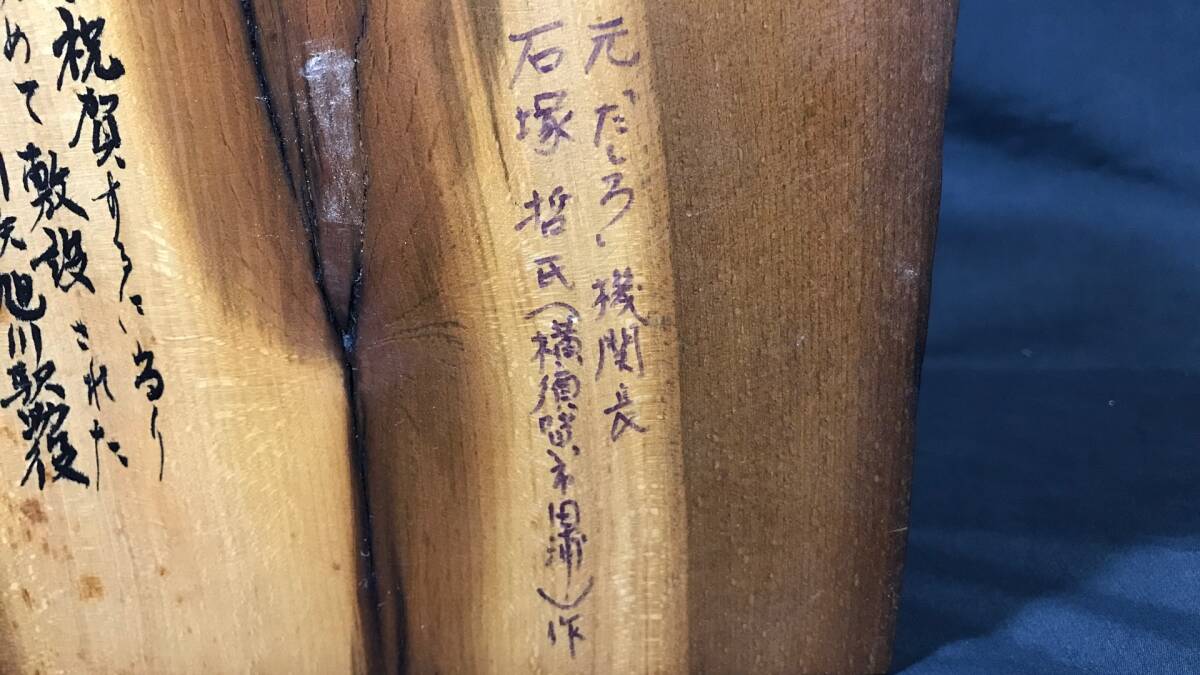 元〝だしろ〟機関長
石塚 哲氏（横須賀市田浦）作
祝賀するに当り
めて敷設された
旭川駅